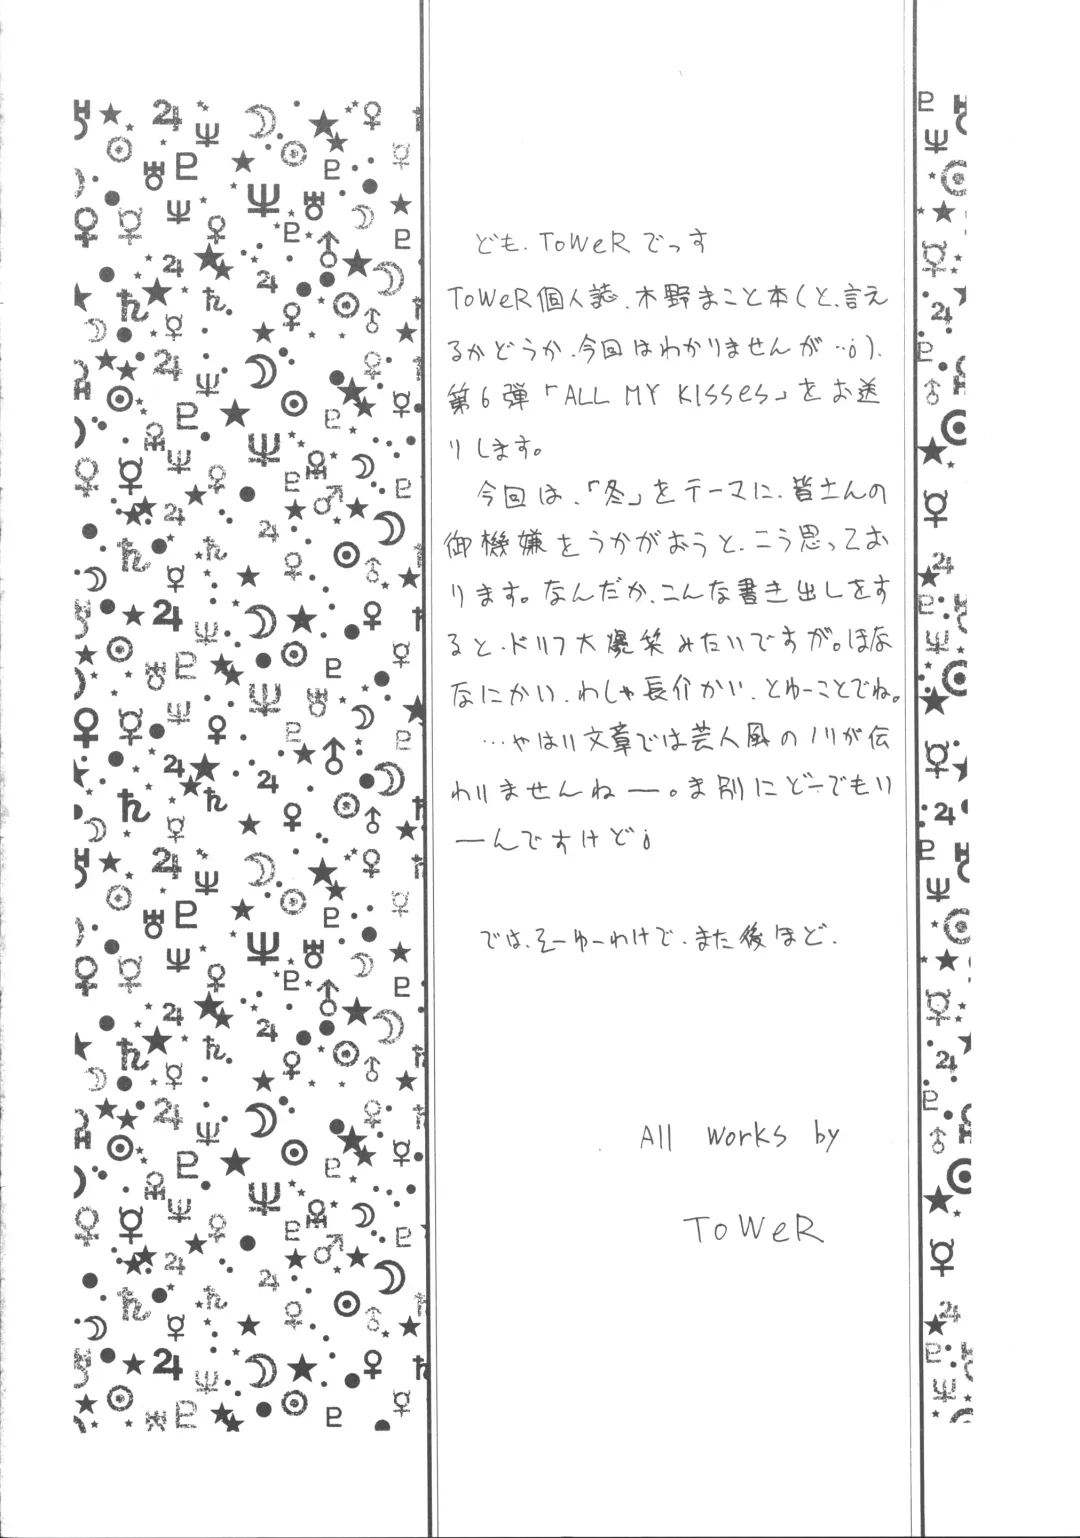 ども、ToWeRでっす
ToWeR個人誌、木野まこと本(と、言え
るかどうか、今回はわかりませんが…；)、
第6弾「ALL MY KISSES」をお送
りします。
今回は、「冬」をテーマに、皆さんの
御機嫌をうかがおうと、こう思ってお
ります。なんだか、こんな書き出しをす
ると、ドリフ大爆笑みたいですが。ほな
なにかい、わしゃ長介かい、とゆーことでね。
…やはり文章では芸人風のノリが伝
わりませんねー。ま別にどーでもい
ーんですけど；
では、そーゆーわけで、また後ほど、
All works by
ToWeR